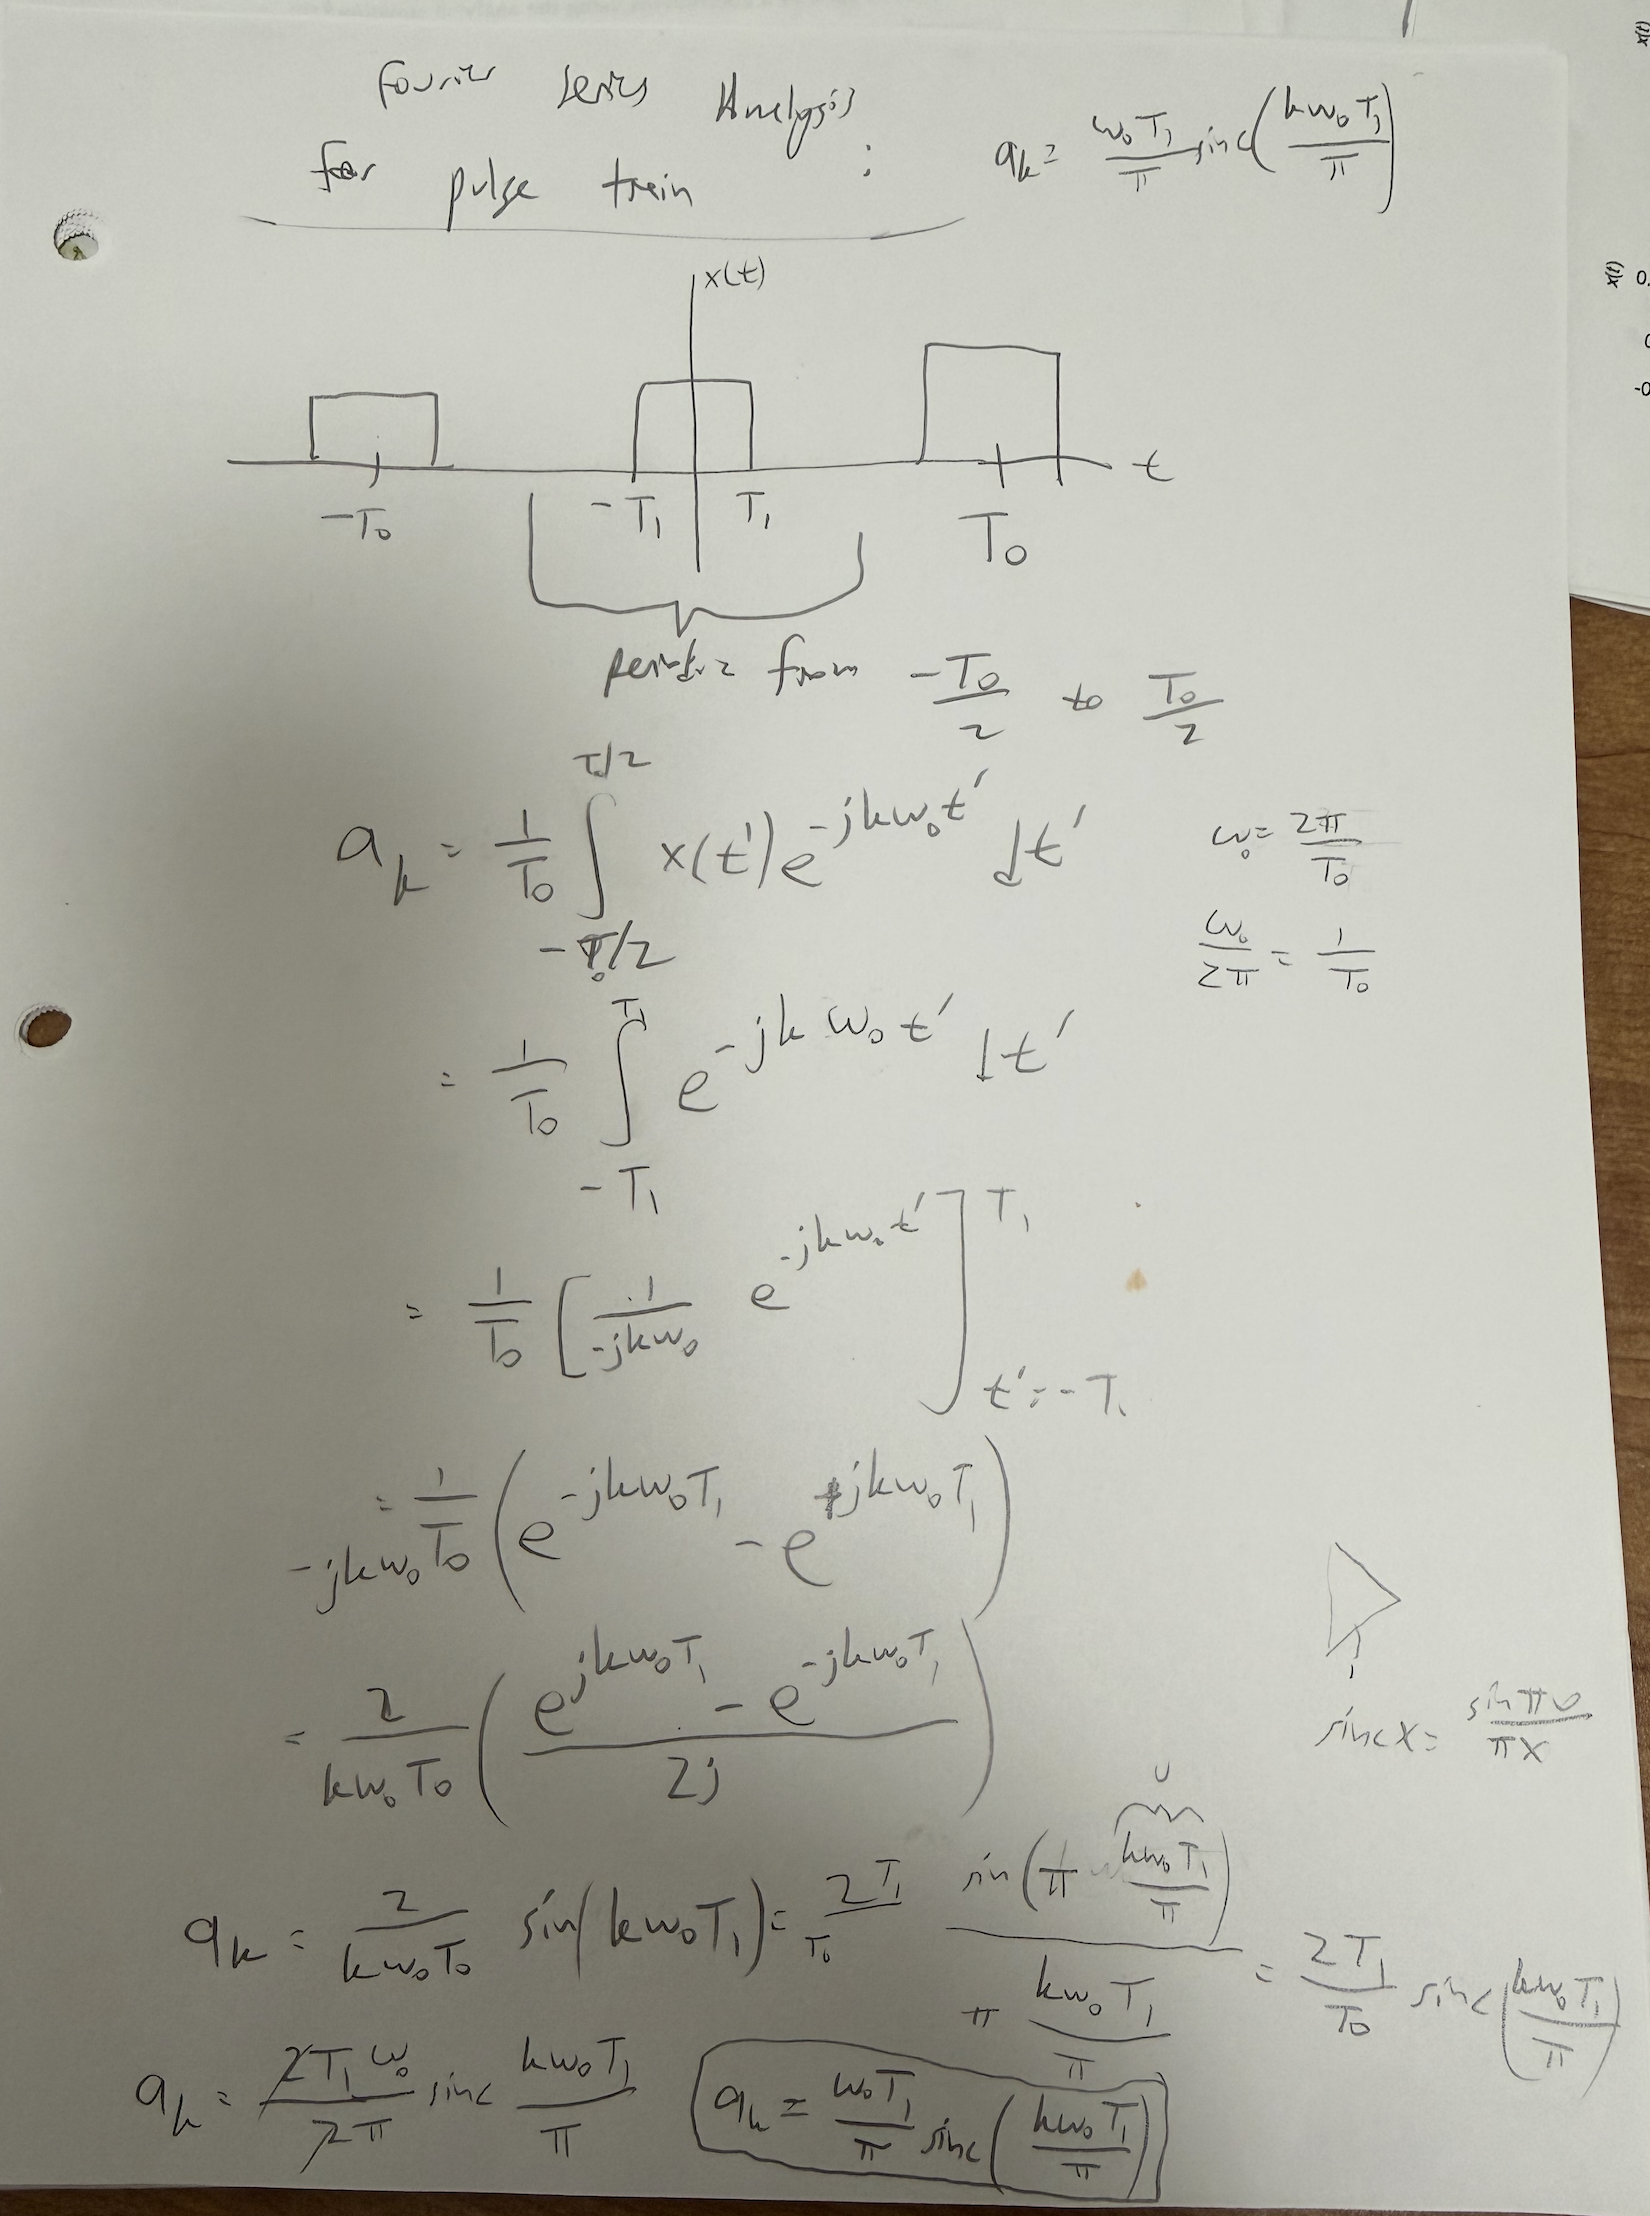 Fourier Series Analysis
for pulse train : a_k = ω₀T₁/π sinc(kω₀T₁/π)
x(t)
t
-T₀ -T₁ T₁ T₀
from -T₀/2 to T₀/2
a_k = 1/T₀ ∫_{-T₀/2}^{T/2} x(t')e^{-jkω₀t'} dt' ω₀ = 2π/T₀
ω₀/2π = 1/T₀
= 1/T₀ ∫_{-T₁}^{T₁} e^{-jkω₀t'} dt'
= 1/T₀ [1/-jkω₀ e^{-jkω₀t'}]_{t'=-T₁}^{T₁}
= 1/-jkω₀T₀ (e^{-jkω₀T₁} - e^{+jkω₀T₁})
= 2/kω₀T₀ ((e^{jkω₀T₁} - e^{-jkω₀T₁})/2j)
sinc x = sin πυ/πx
υ
a_k = 2/kω₀T₀ sin(kω₀T₁) = 2T₁/T₀ sin(π kω₀T₁/π)/(π kω₀T₁/π) = 2T₁/T₀ sinc(kω₀T₁/π)
a_k = 2T₁ω₀/2π sinc kω₀T₁/π a_k = ω₀T₁/π sinc(kω₀T₁/π)
x(t)
x(t) 0.
-0